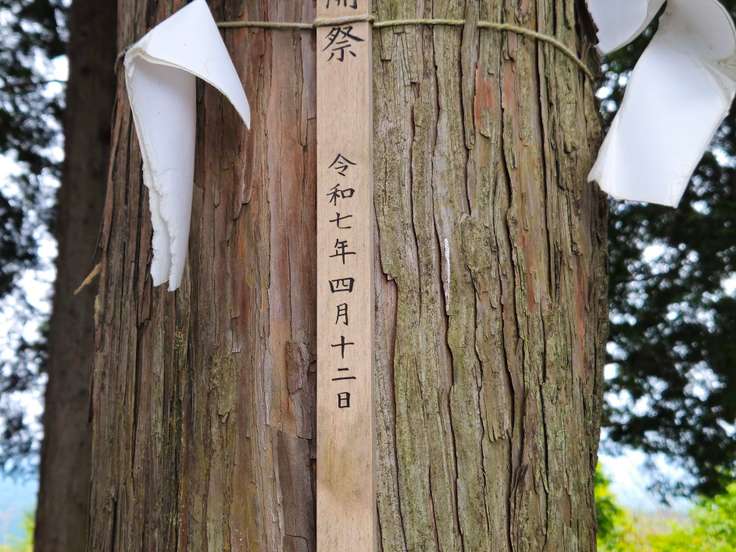 祭 令和七年四月十二日